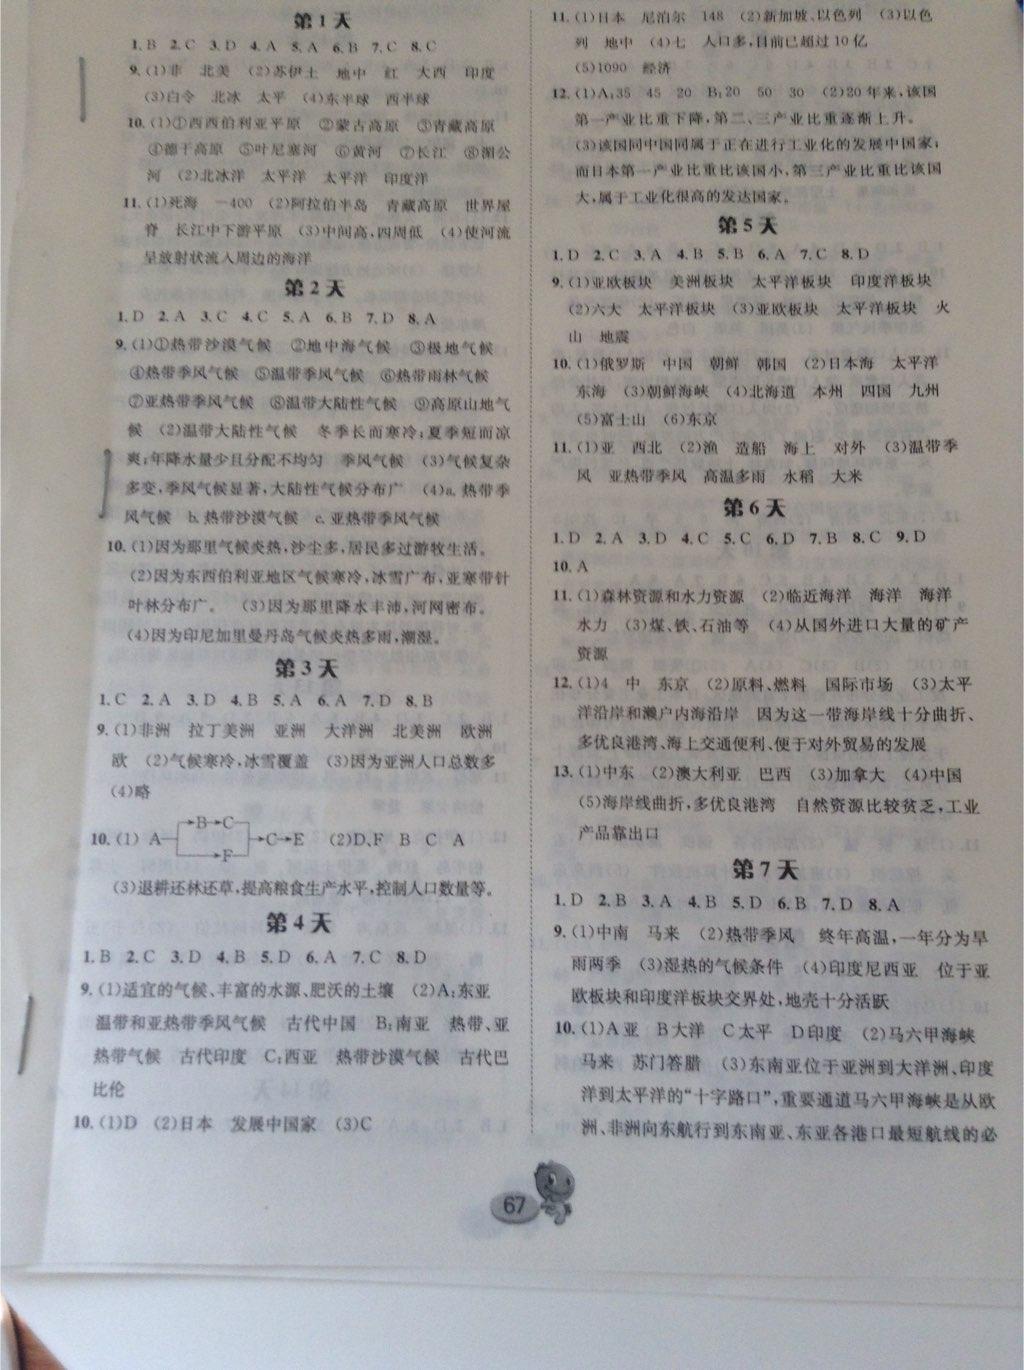 第1天
1.B 2.C 3.D 4.A 5.A 6.B 7.C 8.C
9.(1)非 北美 (2)苏伊士 地中 红 大西 印度
(3)白令 北冰 太平 (4)东半球 西半球
10.(1)①西西伯利亚平原 ②蒙古高原 ③青藏高原
④德干高原 ⑤叶尼塞河 ⑥黄河 ⑦长江 ⑧湄公
河 (2)北冰洋 太平洋 太平洋 印度洋
11.(1)死海 －400 (2)阿拉伯半岛 青藏高原 世界屋
脊 长江中下游平原 (3)中间高,四周低 (4)使河流
呈放射状流入周边的海洋
第2天
1.D 2.A 3.C 4.C 5.A 6.B 7.D 8.A
9.(1)①热带沙漠气候 ②地中海气候 ③极地气候
④热带季风气候 ⑤温带季风气候 ⑥热带雨林气候
⑦亚热带季风气候 ⑧温带大陆性气候 ⑨高原山地气
候 (2)温带大陆性气候 冬季长而寒冷;夏季短而凉
爽;年降水量少且分配不均匀 季风气候 (3)气候复杂
多变,季风气候显著,大陆性气候分布广 (4)a.热带季
风气候 b.热带沙漠气候 c.亚热带季风气候
10.(1)因为那里气候炎热,沙尘多,居民多过游牧生活。
(2)因为东西伯利亚地区气候寒冷,冰雪广布,亚寒带针
叶林分布广。 (3)因为那里降水丰沛,河网密布。
(4)因为印尼加里曼丹岛气候炎热多雨,潮湿。
第3天
1.C 2.A 3.D 4.B 5.A 6.A 7.D 8.B
9.(1)非洲 拉丁美洲 亚洲 大洋洲 北美洲 欧洲
欧 (2)气候寒冷,冰雪覆盖 (3)因为亚洲人口总数多
(4)略
10.(1) A B C F C E (2)D、F B C A
(3)退耕还林还草,提高粮食生产水平,控制人口数量等。
第4天
1.B 2.C 3.D 4.B 5.D 6.A 7.C 8.D
9.(1)适宜的气候、丰富的水源、肥沃的土壤 (2)A:东亚
温带和亚热带季风气候 古代中国 B:南亚 热带、亚
热带气候 古代印度 C:西亚 热带沙漠气候 古代巴
比伦
10.(1)D (2)日本 发展中国家 (3)C
11.(1)日本 尼泊尔 148 (2)新加坡、以色列 (3)以色
列 地中 (4)七 人口多,目前已超过10亿
(5)1090 经济
12.(1)A:35 45 20 B:20 50 30 (2)20年来,该国
第一产业比重下降,第二、三产业比重逐渐上升。
(3)该国同中国同属于正在进行工业化的发展中国家;
而日本第一产业比重比该国小,第三产业比重比该国
大,属于工业化很高的发达国家。
第5天
1.D 2.C 3.A 4.B 5.B 6.A 7.C 8.D
9.(1)亚欧板块 美洲板块 太平洋板块 印度洋板块
(2)六大 太平洋板块 (3)亚欧板块 太平洋板块 火
山 地震
10.(1)俄罗斯 中国 朝鲜 韩国 (2)日本海 太平洋
东海 (3)朝鲜海峡 (4)北海道 本州 四国 九州
(5)富士山 (6)东京
11.(1)亚 西北 (2)渔 造船 海上 对外 (3)温带季
风 亚热带季风 高温多雨 水稻 大米
第6天
1.D 2.A 3.D 4.C 5.C 6.D 7.B 8.C 9.D
10.A
11.(1)森林资源和水力资源 (2)临近海洋 海洋 海洋
水力 (3)煤、铁、石油等 (4)从国外进口大量的矿产
资源
12.(1)4 中 东京 (2)原料、燃料 国际市场 (3)太平
洋沿岸和濑户内海沿岸 因为这一带海岸线十分曲折、
多优良港湾、海上交通便利、便于对外贸易的发展
13.(1)中东 (2)澳大利亚 巴西 (3)加拿大 (4)中国
(5)海岸线曲折,多优良港湾 自然资源比较贫乏,工业
产品靠出口
第7天
1.D 2.B 3.A 4.B 5.D 6.B 7.D 8.A
9.(1)中南 马来 (2)热带季风 终年高温,一年分为旱
雨两季 (3)湿热的气候条件 (4)印度尼西亚 位于亚
欧板块和印度洋板块交界处,地壳十分活跃
10.(1)A亚 B大洋 C太平 D印度 (2)马六甲海峡
马来 苏门答腊 (3)东南亚位于亚洲到大洋洲、印度
洋到太平洋的“十字路口”,重要通道马六甲海峡是从欧
洲、非洲向东航行到东南亚、东亚各港口最短航线的必
67